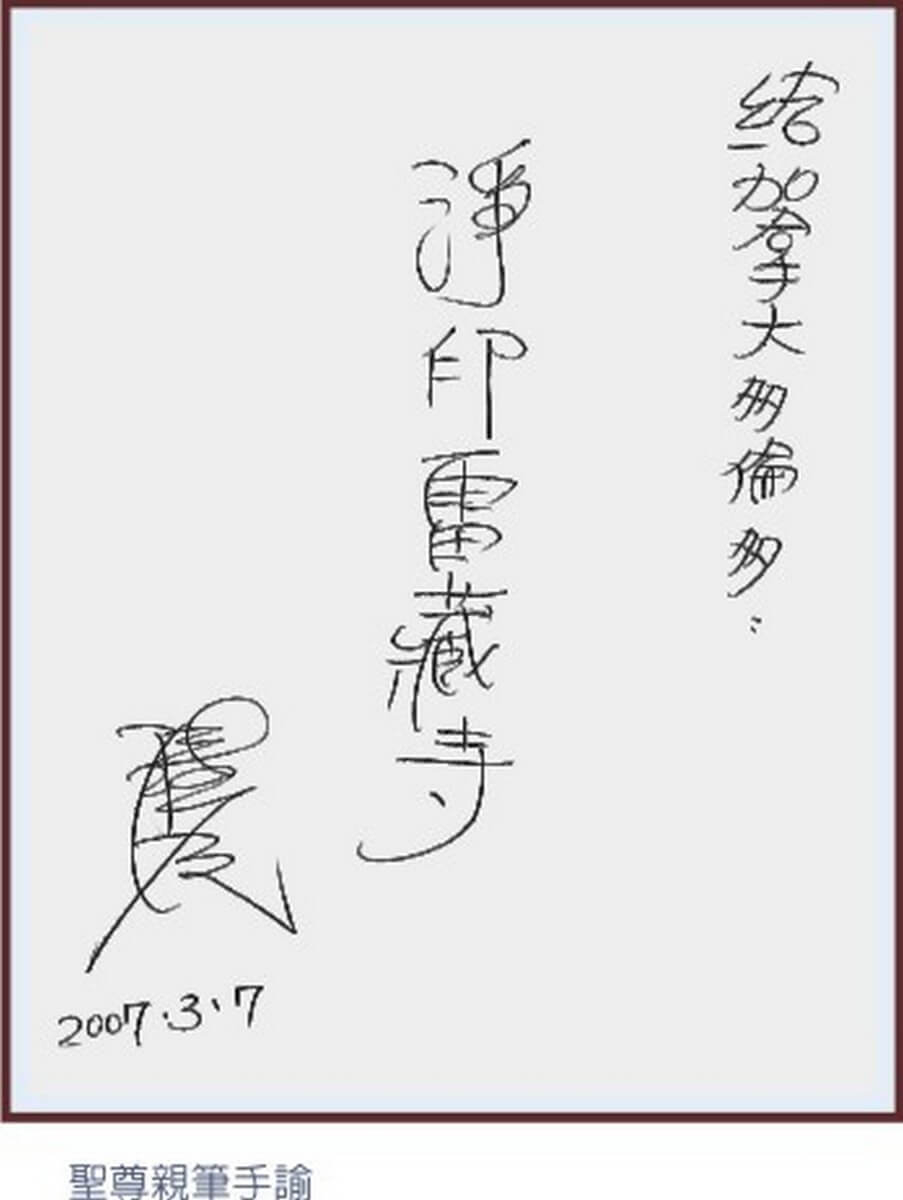 給加拿大多倫多：
淨印雷藏寺
2007.3.7
聖尊親筆手諭